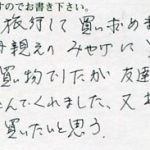 すのでお書き下さい。
旅行して買い求めま
想えのみやげに
買い物でしたが友達
んでくれました、又
買いたいと思う.